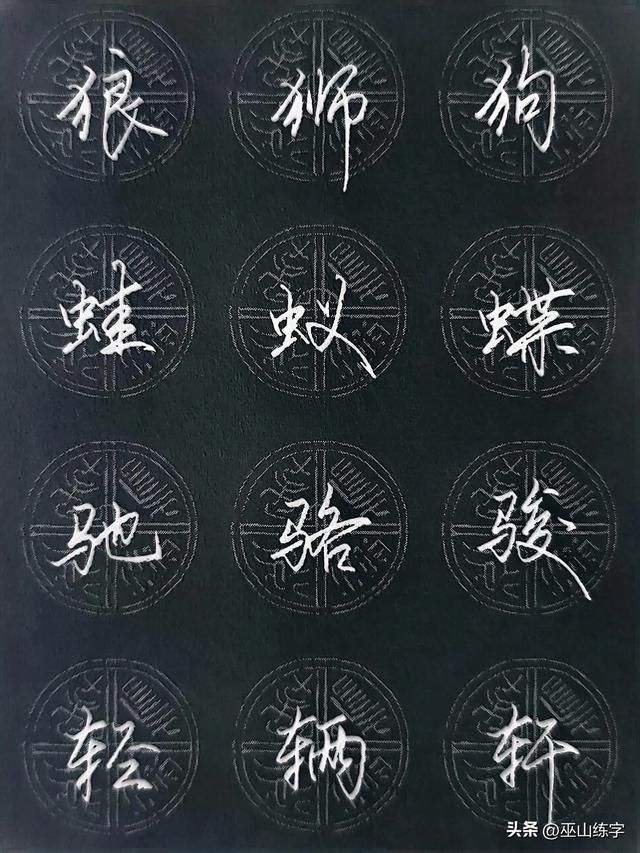 狼 狮 狗
蛙 蚁 蝶
驰 骆 骏
轻 辆 轩
头条 @巫山练字